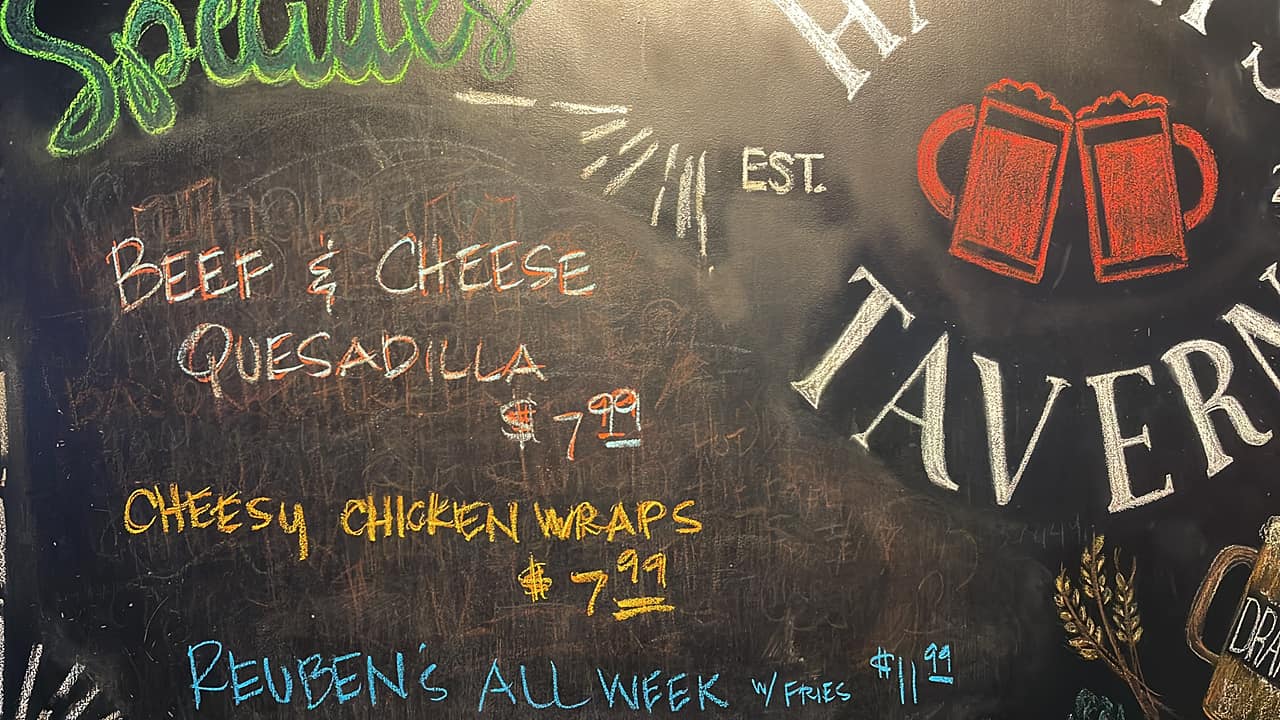 Specials
EST.
BEEF & CHEESE
QUESADILLA
$7.99
TAVERN
CHEESY CHICKEN WRAPS
$7.99
REUBEN'S ALL WEEK W/ FRIES $11.99